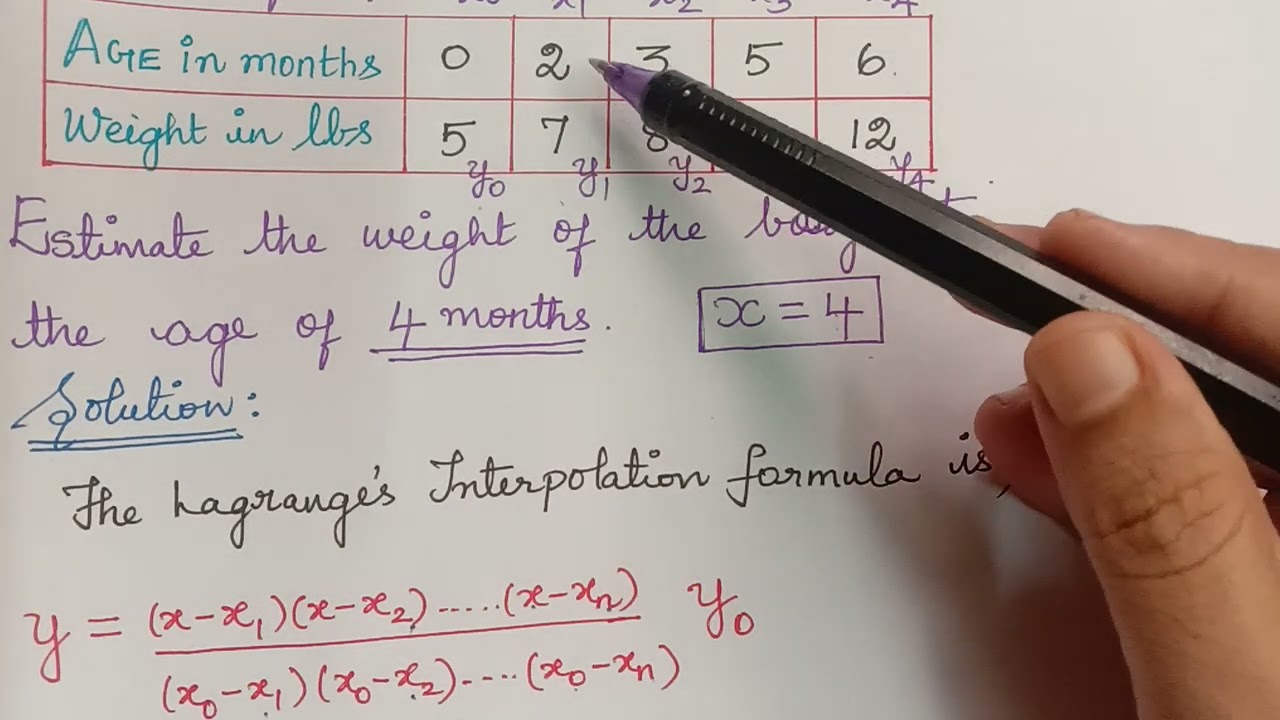 x1 x2 x3 x4
AGE in months 0 2 3 5 6
Weight in lbs 5 7 8 12
y0 y1 y2 y4
Estimate the weight of the
the age of 4 months. x = 4
Solution:
The Lagrange's Interpolation formula is,
y = (x-x1)(x-x2).....(x-xn) y0
(x0-x1)(x0-x2)....(x0-xn)